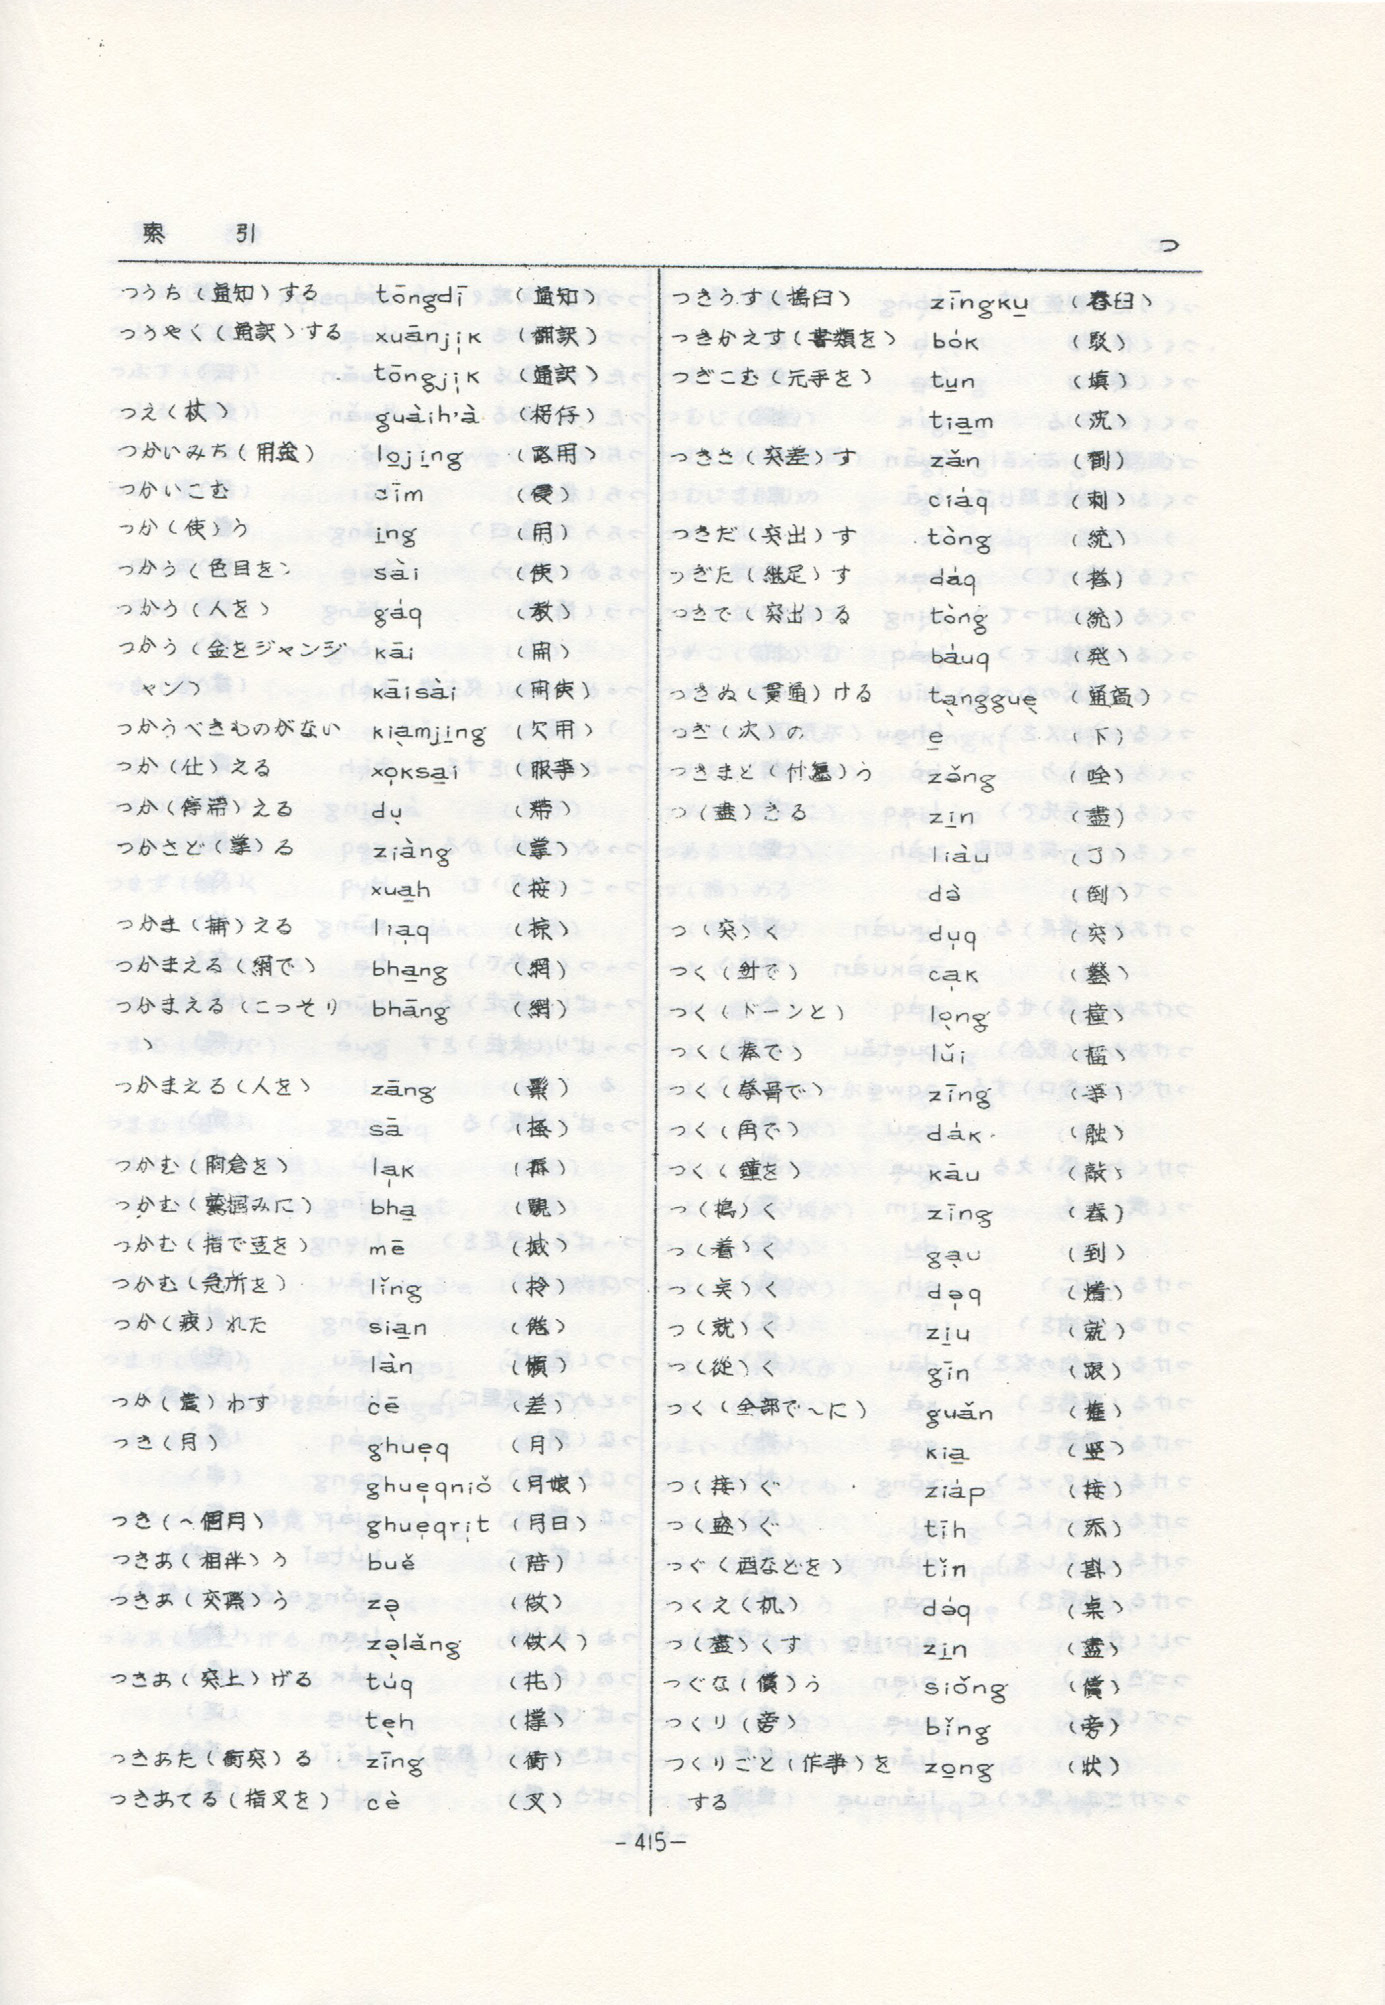 索 引
つ
つうち（通知）する tōngdī （通知）
つうやく（通訳）する xuānji̍k （翻訳）
tōngji̩k （通訳）
つえ（杖） guàih'à （枴仔）
つかいみち（用途） lo̱ji̱ng （路用）
つかいこむ cīm （侵）
つか（使）う i̱ng （用）
つかう（色目を） sài （使）
つかう（人を） gáq （教）
つかう（金をジャンジ kāi （開）
ャン） kāisài （開使）
つかうべきものがない kia̩mji̱ng （欠用）
つか（仕）える xo̩ksa̱i （服事）
つか（停滞）える du̩ （滞）
つかさど（掌）る ziàng （掌）
xua̱h （按）
つかま（捕）える lia̩q （掠）
つかまえる（網で） bha̱ng （網）
つかまえる（こっそり bhāng （網）
）
つかまえる（人を） zāng （鬃）
sā （搔）
つかむ（胸倉を） la̩k
つかむ（藁掴みに） bha̱
つかむ（指で豆を） mē
つかむ（急所を） lǐng （拎）
つか（疲）れた sia̱n （倦）
làn （懶）
つか（遣）わす cē （差）
つき（月） ghue̩q （月）
ghue̩qniǒ （月娘）
つき（～個月） ghue̩qri̩t （月日）
つきあ（相伴）う buě （陪）
つきあ（交際）う zə̩ （做）
zə̩lǎng （做人）
つきあ（突上）げる túq
te̩h （撑）
つきあた（衝突）る zīng （衝）
つきあてる（指叉を） cè （叉）
つきうす（搗臼） zīngku̱ （舂臼）
つきかえす（書類を） bók （駁）
つぎこむ（元手を） tu̱n （填）
tia̱m （沈）
つきさ（突差）す zǎn
ciáq （刺）
つきだ（突出）す tòng （統）
つぎた（継足）す dáq （搭）
つきで（突出）る tòng （統）
báuq （発）
つきぬ（貫通）ける ta̩nggue̩ （通過）
つぎ（次）の e̱ （下）
つきまと（付纏）う zǒng
つ（盡）きる zi̱n （盡）
liàu （了）
dà （倒）
つ（突）く du̩q （突）
つく（針で） ca̩k （鑿）
つく（ドーンと） lo̩ng （撞）
つく（棒で） lǔi （擂）
つく（拳骨で） zīng
つく（角で） dák （触）
つく（鐘を） kāu （敲）
つ（搗）く zīng （舂）
つ（着）く ga̩u （到）
つ（点）く də̩q
つ（就）く zi̱u （就）
つ（従）く gīn （跟）
つく（全部で～に） guǎn （権）
kia̱ （竪）
つ（接）ぐ ziáp （接）
つ（盛）ぐ tīh （添）
つぐ（酒などを） tǐn （斟）
つくえ（机） dáq （桌）
つ（盡）くす zi̱n （盡）
つぐな（償）う siǒng （償）
つくり（旁） bǐng （旁）
つくりごと（作事）を zo̱ng （状）
する
-415-